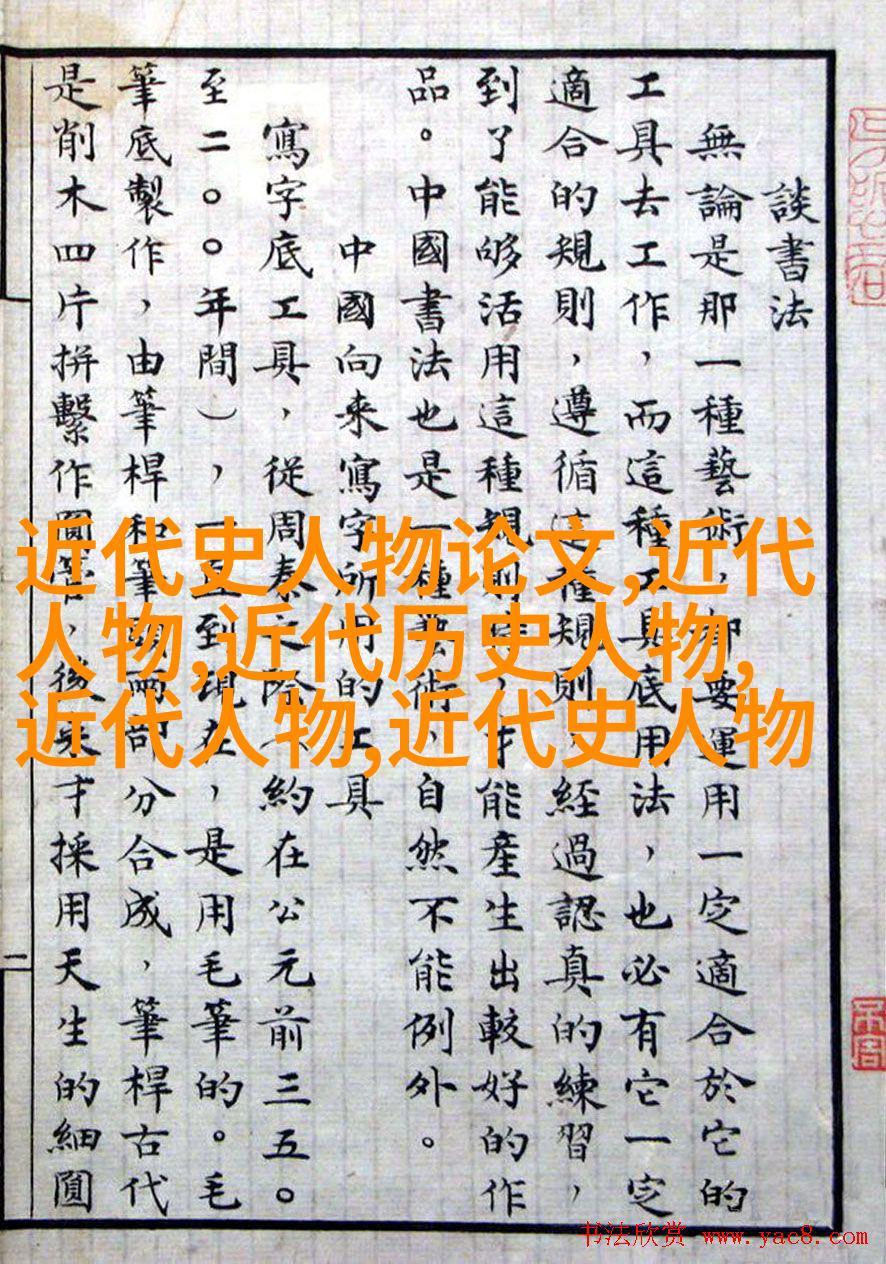 談書法
無論是那一種藝術，都要運用一定適合於它的
工具去工作，而這種工具底用法，也必有它一定
適合的規則，遵循這種規則，經過認真的練習，
到了能够活用這種規則時，才能產生出較好的作
品。中國書法也是一種藝術，自然不能例外。
中國向來寫字所用的工具
寫字底工具，從周秦之際（約在公元前三五〇
至二〇〇年間），一直到現在，是用毛筆的。毛
筆底製作，由筆桿和筆頭兩部分合成，筆桿古代
是削木四片拼繫作圓管，後來才採用天生的細圓
二
近代史人物论文,近代
人物,近代历史人物,
近代人物,近代史人物
书法欣赏 www.yac8.com